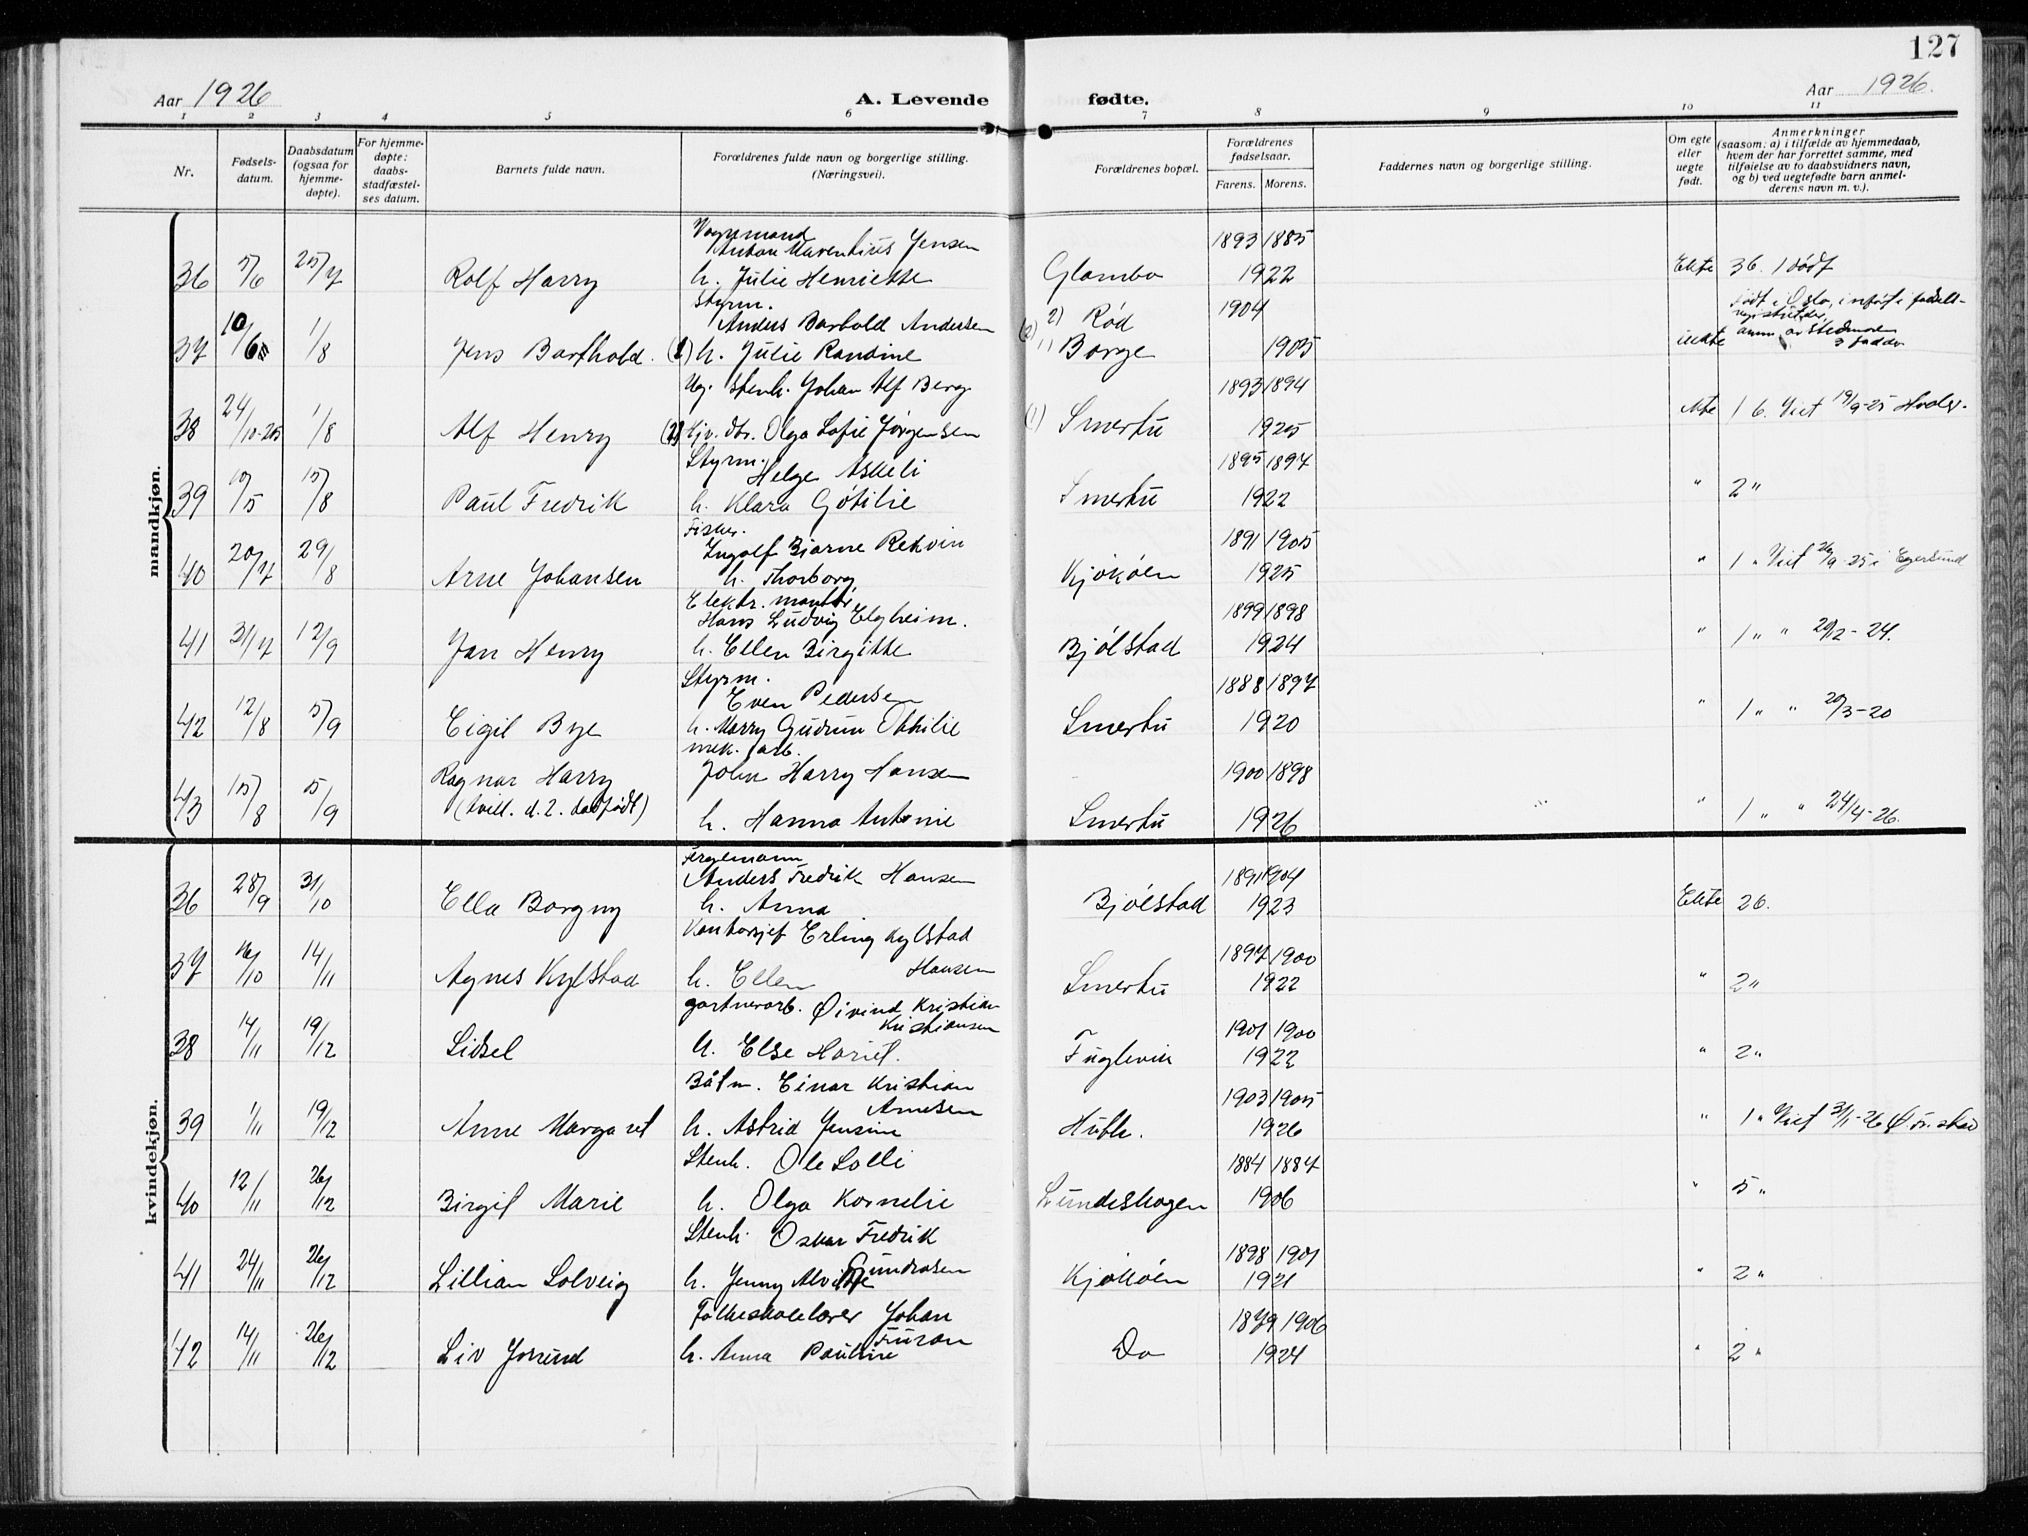 127
Aar 1926 A. Levende fødte. Aar 1926.
1 2 3 4 5 6 7 8 9 10 11
Nr.
Fødsels-
datum.
Daabsdatum
(ogsaa for
hjemme-
døpte).
For hjemme-
døpte:
daabs-
stadfæstel-
ses datum.
Barnets fulde navn.
Forældrenes fulde navn og borgerlige stilling.
(Næringsvei).
Forældrenes bopæl.
Forældrenes
fødselsaar.
Farens. Morens.
Faddernes navn og borgerlige stilling.
Om egte
eller
uegte
født.
Anmerkninger
(saasom: a) i tilfælde av hjemmedaab,
hvem der har forrettet samme, med
tilføielse av to daabsvidners navn,
og b) ved uegtefødte barn anmel-
derens navn m. v.).
mandkjøn.
Anton Jensen 1893 1885
36 5/6 25/7 Rolf Harry h. Julie Henriette Glombo 1922 Ekte 36.
Styrm.
Anders Barthold Andersen 2) Rød 1904
37 10/6 1/8 Jens Barthold. h. Julie Randine 1) Borge 1905
Ug. Stenh. Johan Alf Berg 1893 1894
38 24/10-25 1/8 Alf Henry Olga Sofie Jørgensen (1) Smertu 1925 1 b. Viet 19/9-25
Styrm.
Helge Askeli 1895 1897
39 10/5 15/8 Paul Fredrik h. Klara Gótilie Smertu 1922 " 2 "
Fisker.
Ingolf Bjarne Rekvin 1891 1905
40 20/7 29/8 Arne Johansen h. Thorborg Kjøkøen 1925 " 1 " Viet 26/9-25 i Egersund
Elektr. montør
Hans Ludvig Elgheim. 1899 1898
41 31/7 12/9 Jan Henry h. Ellen Birgitte Bjølstad 1924 " 1 " " 20/12-24.
Styrm.
Even Pedersen 1888 1897
42 12/8 5/9 Eigil Bye h. Marry Gudrun Othilie Smertu 1920 " 1 " " 20/3-20
mek. arb.
John Harry Hansen 1900 1898
43 15/8 5/9 Ragnar Harry
(tvill. d. 2. dødfødt) h. Hanna Antonie Smertu 1926 " 1 " " 24/4-26.
kvindekjøn.
Anders Fredrik Hansen 1891 1904
36 28/9 31/10 Ella Borgny h. Anna Bjølstad 1923 Ekte 26.
Kontorsjef Erling Kylstad
Hansen 1897 1900
37 16/10 14/11 Agnes Kylstad h. Ellen Smertu 1922 " 2 "
gartnerarb. Øivind Kristian
Kristiansen 1901 1900
38 14/11 19/12 Lidsel h. Else Hariet. Fuglevik 1922 " 2 "
Båtm. Einar Kristian
Arnesen 1903 1905
39 1/11 19/12 Anne Margaret h. Astrid Jensine Huth. 1926 " 1 " Viet 31/1-26
Stenh. Ole Lolli 1884 1887
40 12/11 26/12 Birgit Marie h. Olga Kornelie Lundeskogen 1906 " 5 "
Stenh. Oskar Fredrik
Gundrosen 1898 1901
41 24/11 26/12 Lillian Solveig h. Jenny Alvilde Kjøkøen 1921 " 2 "
Folkeskolelærer Johan
Furan 1879 1906
42 14/11 26/12 Liv Jorund h. Anna Pauline Do 1924 " 2 "